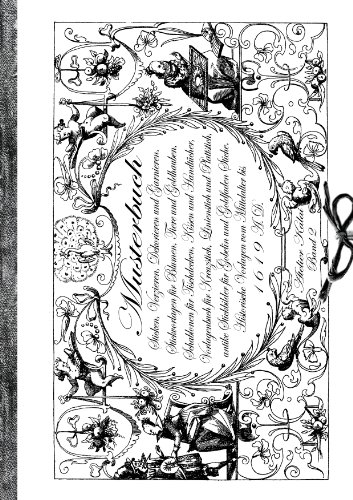 Musterbuch
Sticken, Verzieren, Dekorieren und Garnieren,
Stickvorlagen für Blumen, Tiere und Goldhauben,
Schablonen für Tischdecken, Kissen und Handtücher,
Vorlagenbuch für Kreuzstich, Leinenstich und Plattstich
antike Stickbilder für Gobelin und Goldfaden Sticker,
Historische Vorlagen vom Mittelalter bis
1619 A.D.
Heikes Katia
Band 2